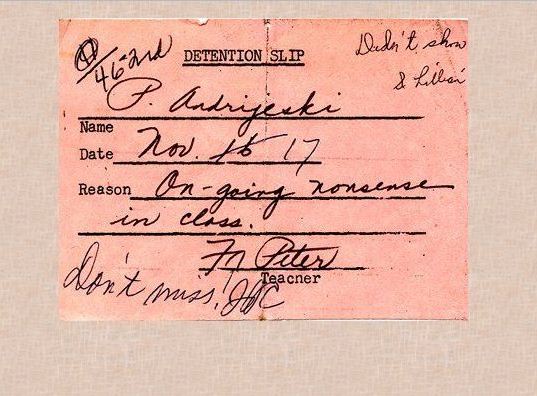 46-2nd
DETENTION SLIP
Didn't show
P. Andrijeski
Name
Date Nov. 16 17
Reason On-going nonsense
in class.
Peter
Teacher
Don't miss!